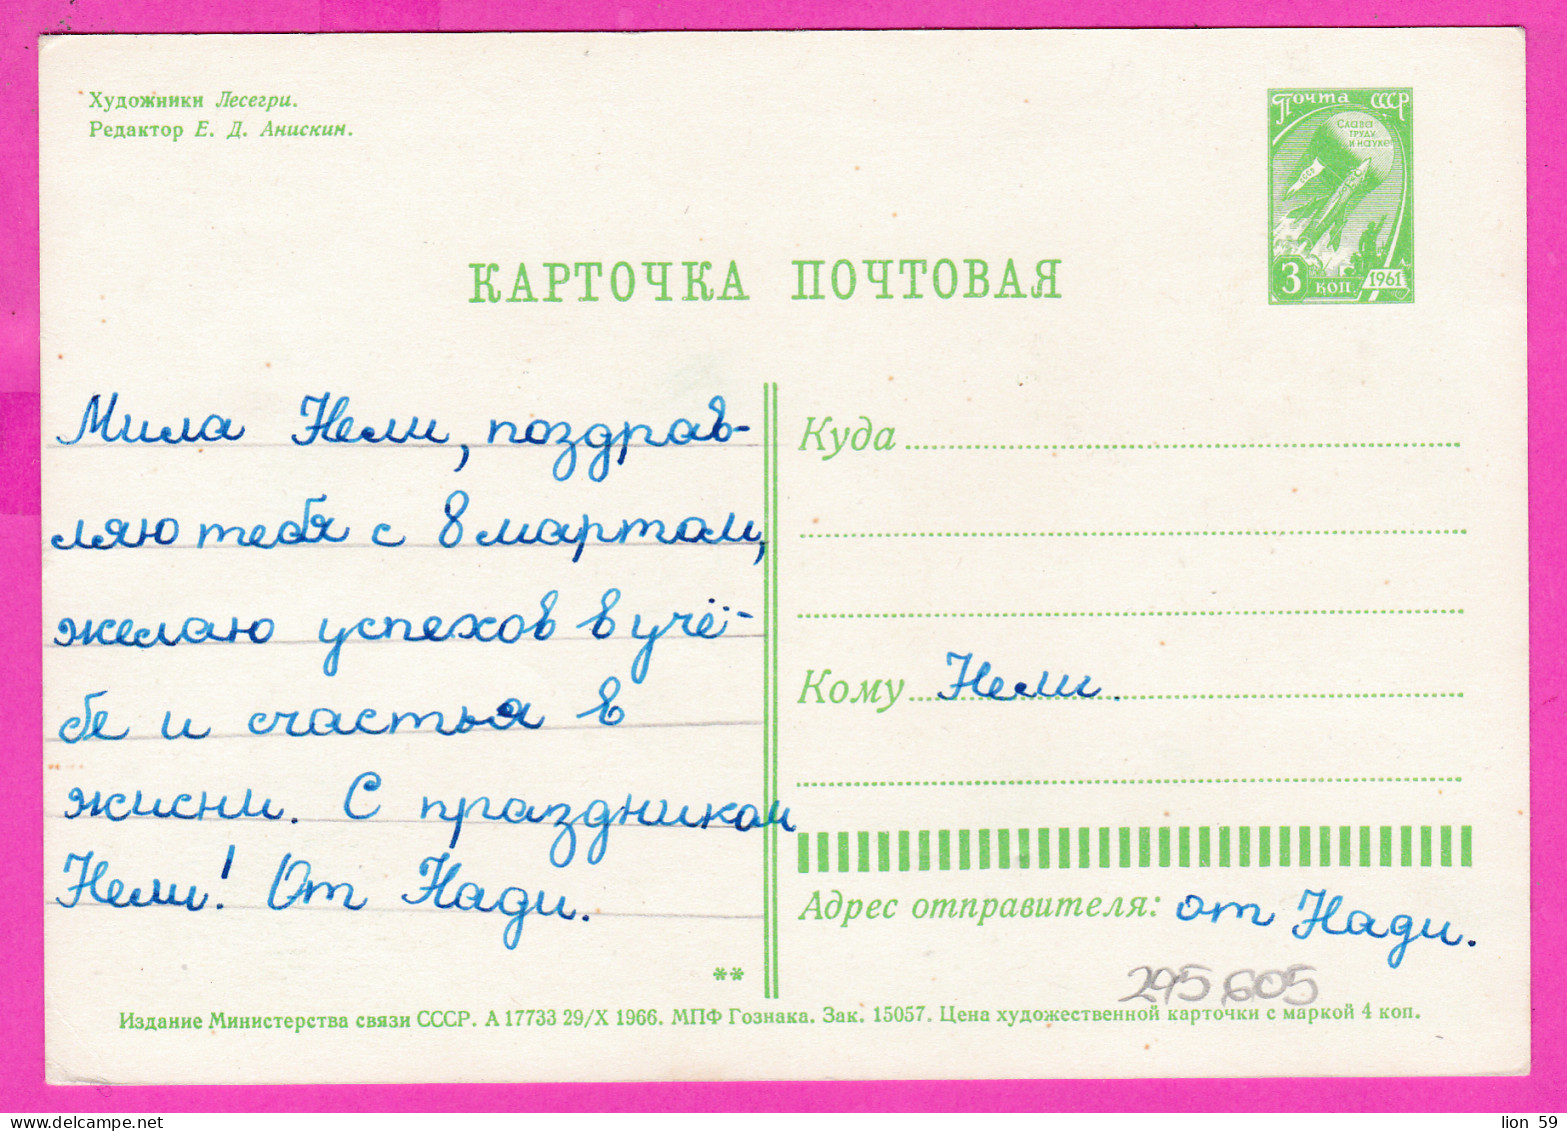 Художники Лесегри.
Редактор Е. Д. Анискин.
Почта СССР
Слава
труду
и науке
СССР
3 коп 1961
КАРТОЧКА ПОЧТОВАЯ
Мила Нели, поздрав-
ляю тебя с 8 мартом,
желаю успехов в учё-
бе и счастья в
жисни. С праздником
Нели! От Нади.
Куда
Кому Нели.
Адрес отправителя: от Нади.
**
295605
Издание Министерства связи СССР. А 17733 29/X 1966. МПФ Гознака. Зак. 15057. Цена художественной карточки с маркой 4 коп.
delcampe.net
lion 59